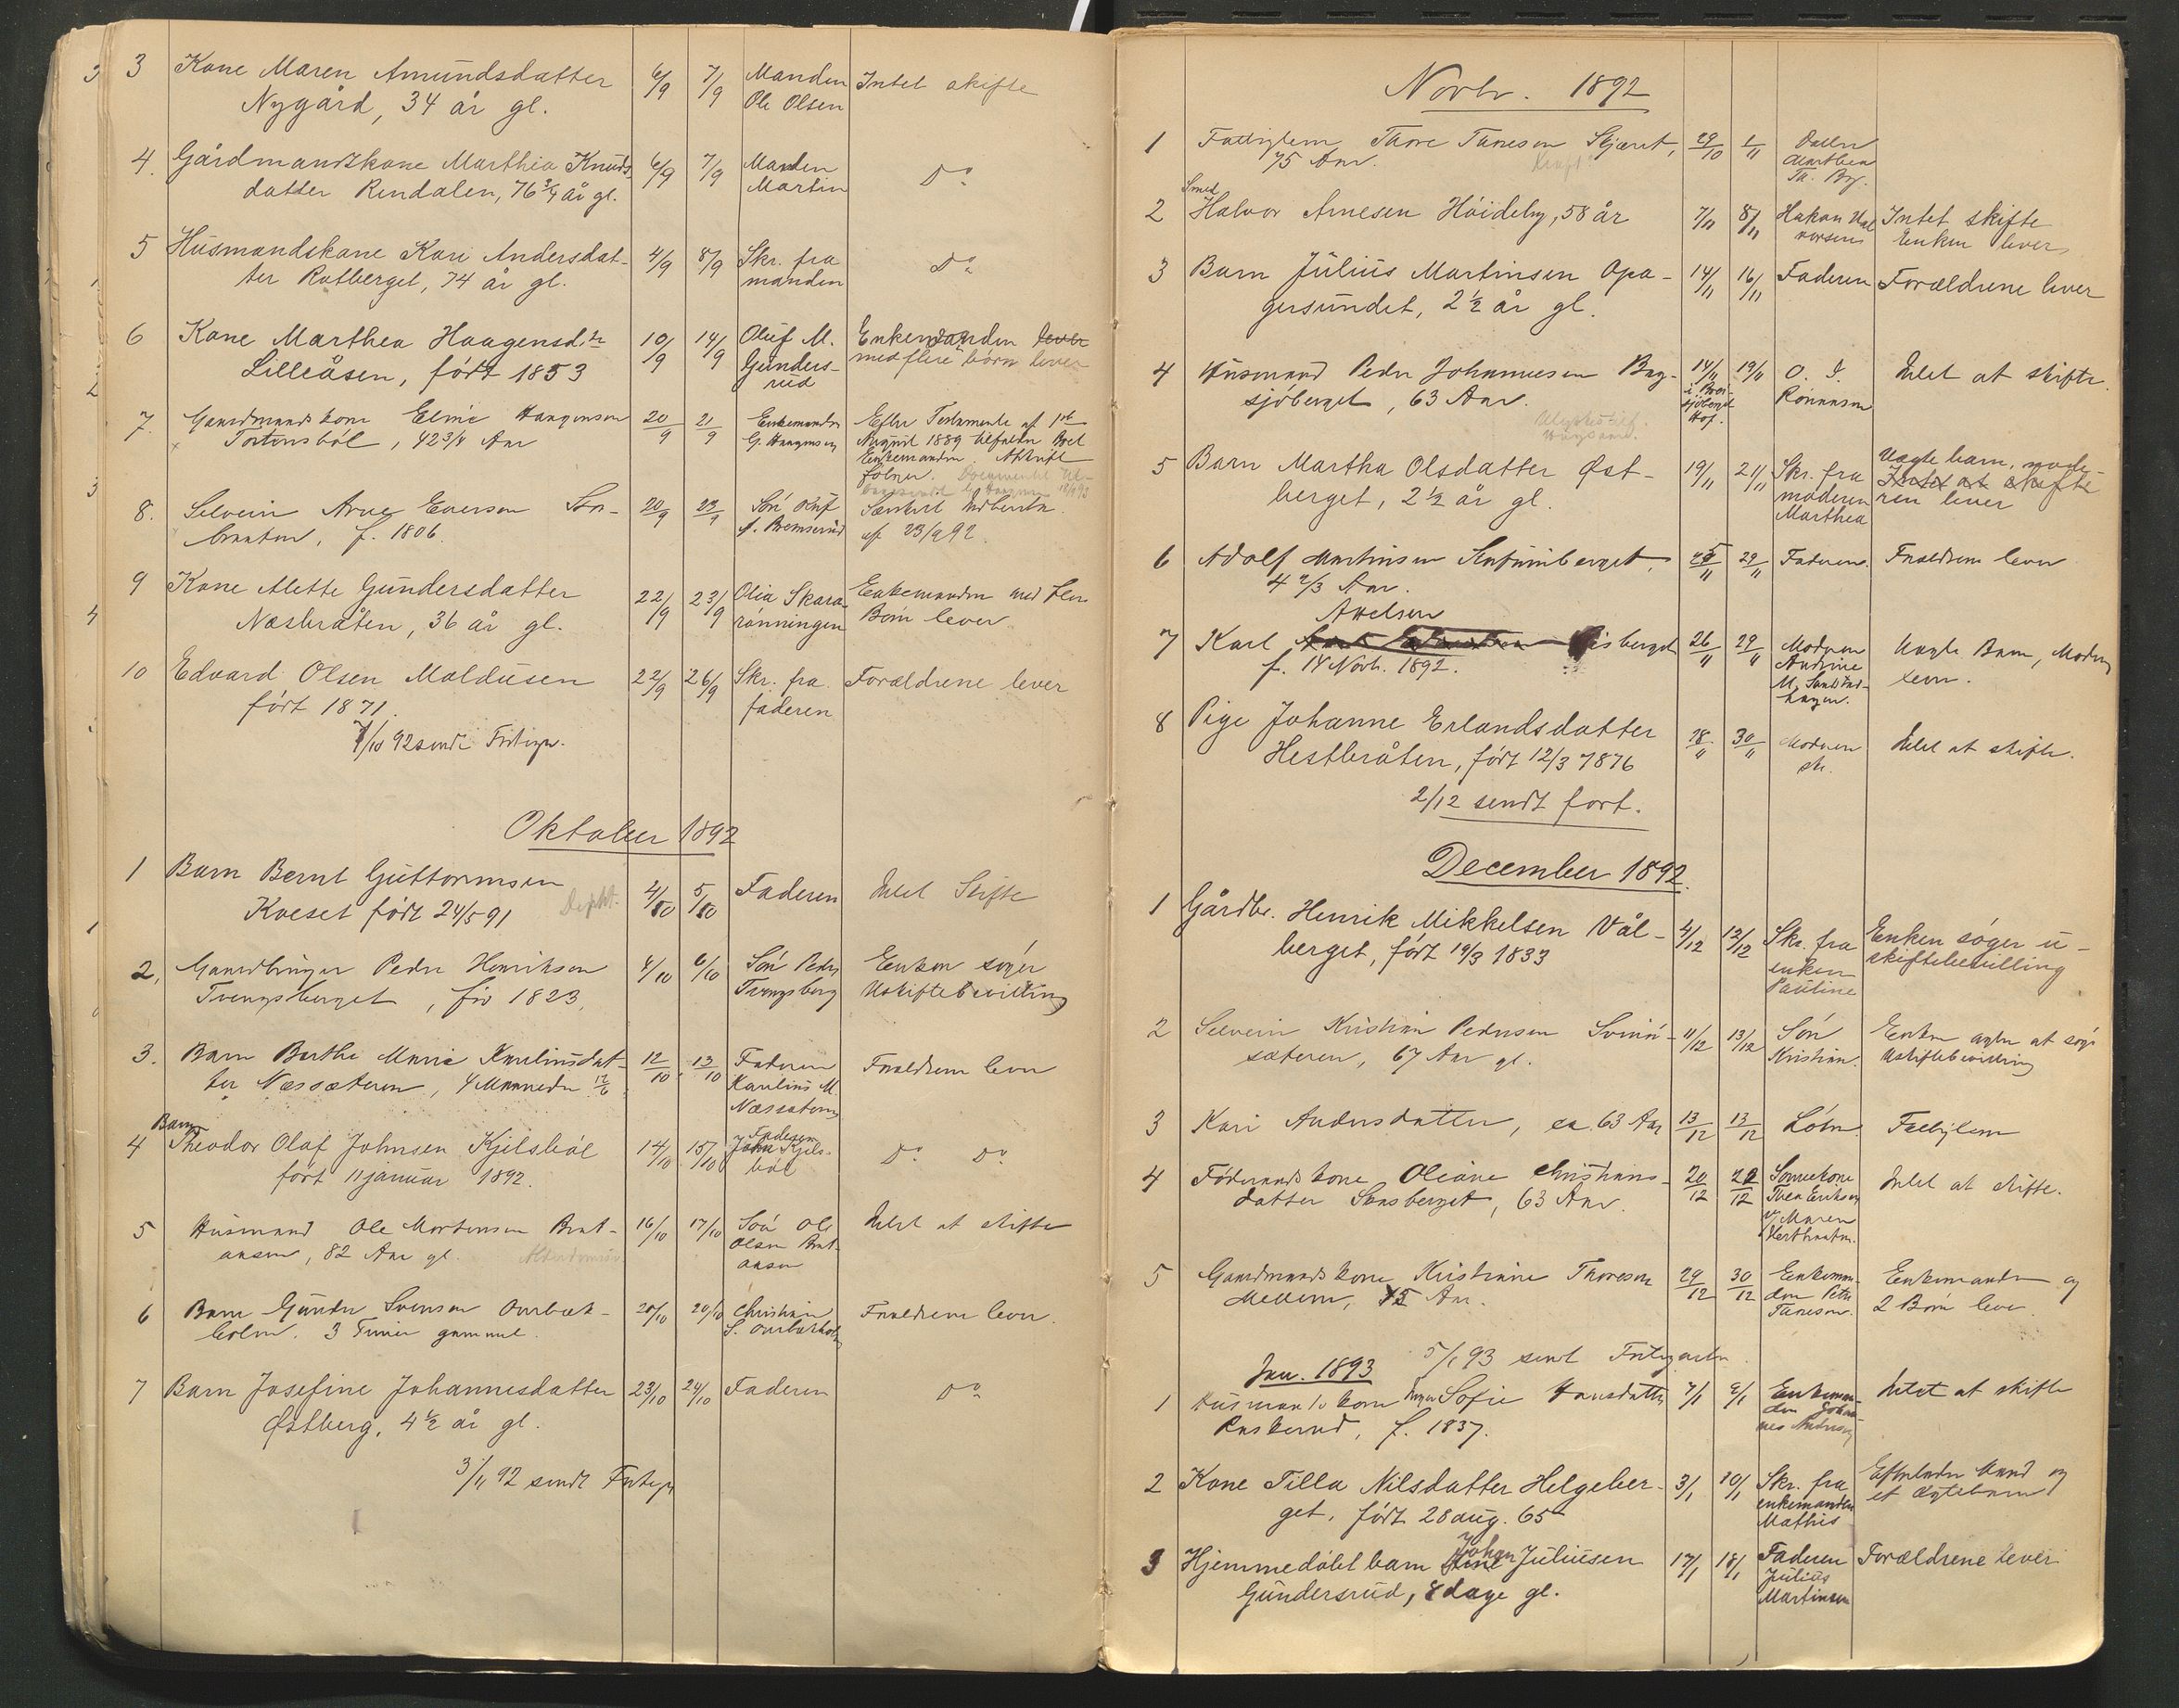 3 Kone Maren Amundsdatter 6/9 7/9 Manden Intet skifte
Nygård, 34 år gl. Ole Olsen
4. Gårdmandskone Marthea Knuds- 6/9 7/9 Manden Do
datter Rindalen, 76 3/4 år gl. Martin
5 Husmandskone Kari Andersdat- 4/9 8/9 Skr. fra Do
ter Rotberget, 74 år gl. manden
6 Kone Marthea Haagensdtr 10/9 14/9 Oluf M. Enkemanden lever
Lilleåsen, født 1853 Gunders- med flere børn lever
rud
7. Gaardmandskone Eline Haagensen 20/9 21/9 Enkemanden Efter Testamente af 1ste
42 3/4 Aar G. Haagensen August 1889 tilfalder Boet
Enkemanden. Afskrift
følger.
8. Selveier Arne Everson 20/9 23/9 Søn
f. 1806. af 23/9 92.
9 Kone Mette Gundersdatter 22/9 23/9 Olia Skara- Enkemanden med flere
Næsbråten, 36 år gl. rønningen Børn lever
10 Edvard Olsen Moldusen 22/9 26/9 Skr. fra Forældrene lever
født 1871. faderen
7/10 92 sendt
Oktober 1892
1 Barn Bernt Guttormsen 4/10 5/10 Faderen Intet Skifte
Kveset født 24/5 91
2, Gaardbruger Peder Henriksen 4/10 6/10 Søn Peder Enken søger
Tvengsberget, før 1823, Tvengsberg Uskiftebevilling
3. Barn Berthe Marie Karlinusdat- 12/10 13/10 Faderen Forældrene lever
ter Næssæteren, 4 Maaneder 12/6 Karlinus M.
Næssæteren
Barn
4 Theodor Olaf Johnsen Kjilsbøl 14/10 15/10 Faderen Do Do
født 11 januar 1892. John Kjils-
bøl
5 Husmand Ole Mortensen Brat- 16/10 17/10 Søn Ole Intet at skifte
aasen, 82 Aar gl. Olsen Brat-
aasen
6 Barn Gunder Svensen Ourbæk- 20/10 20/10 Christian Forældrene lever.
holm. 3 Timer gammel. S. Ourbækholm
7 Barn Josefine Johannesdatter 23/10 24/10 Faderen Do
Østberg, 4 1/2 år gl.
3/11 92 sendt
Novbr. 1892
1 Fattiglem Thore Tanesen Skjæret, 29/10 1/11 Datter
75 Aar. Marthea
Th. Byg.
Smed
2 Halvor Arnesen Høideby, 58 år 7/11 8/11 Håkon Hal Intet skifte
vorsen Enken lever
3 Barn Julius Martinsen Opa- 14/11 16/11 Faderen Forældrene lever
gersundet, 2 1/2 år gl.
4 Husmand Peder Johannesen Brei- 14/11 19/11 O. J. Intet at skifte.
sjøberget, 63 Aar. i Brei- Rønaasen
sjøberget
Hof.
5 Barn Martha Olsdatter Øst- 19/11 21/11 Skr. fra Uægte barn, mode-
berget, 2 1/2 år gl. moderen ren lever
Marthea
6 Adolf Martinsen 29/11 Faderen Forældrene lever
4 2/3 Aar.
Axelsen
7 Karl 26/11 29/11 Moderen Uægte Barn, Moderen
f. 14 Novb. 1892. Andrine lever.
M.
8 Pige Johanne Erlandsdatter 28/11 30/11 Moderen Intet at skifte.
Hestbråten, født 12/3 1876 skr.
2/12 sendt fort.
December 1892.
1 Gårdbr. Henrik Mikkelsen Vål- 4/12 12/12 Skr. fra Enken søger u-
berget, født 19/3 1833 enken skiftebevilling
Pauline
2 Selveier Kristian Pedersen Svinn- 11/12 13/12 Søn Enken agter at søge
sæteren, 67 Aar gl. Kristian. Uskiftebevilling
3 Kari Andersdatter, ca. 63 Aar 13/12 13/12 Fattiglem
4 Fødemandskone Oliane Christians- 20/12 22/12 Sønnekone Intet at skifte.
datter 63 Aar. Thea Eriksen
v/ Maren
5 Gaardmandskone Kristiane Thoresen 29/12 30/12 Enkeman- Enkemanden og
Mellem, 75 Aar. den Peter 2 Børn lever
Tanesen.
5/1 93 sendt
Jan. 1893
1 Husmandskone Inger Sofie Hansdatter 7/1 9/1 Enkeman- Intet at skifte
f. 1837. den Johan-
nes Andersen
2 Kone Tilla Nilsdatter Helgeber- 3/1 10/1 Skr. fra Efterlader Mand og
get, født 28 aug. 65 enkemanden et Ægtebarn
Mathis
3 Hjemmedøbt barn Johan Juliusen 17/1 18/1 Faderen Forældrene lever
Gundersrud, 8 dage gl. Julius
Martinsen